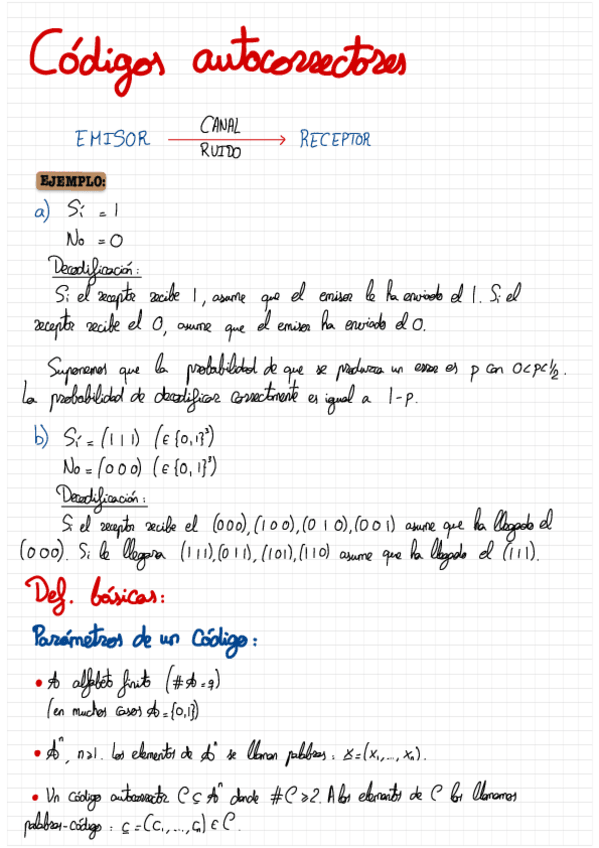 Códigos autocorrectores
CANAL
EMISOR → RECEPTOR
RUIDO
EJEMPLO:
a) Sí = 1
No = 0
Decodificación:
Si el receptor recibe 1, asume que el emisor le ha enviado el 1. Si el
receptor recibe el 0, asume que el emisor ha enviado el 0.
Suponemos que la probabilidad de que se produzca un error es p con 0<p<1/2.
La probabilidad de decodificar correctamente es igual a 1-p.
b) Sí = (1 1 1) (∈ {0,1}³)
No = (0 0 0) (∈ {0,1}³)
Decodificación:
Si el receptor recibe el (000), (100), (010), (001) asume que ha llegado el
(000). Si le llegara (111), (011), (101), (110) asume que ha llegado el (111).
Def. básicas:
Parámetros de un Código:
• A alfabeto finito (#A=q)
(en muchos casos A={0,1})
• Aⁿ, n≥1. Los elementos de Aⁿ se llaman palabras: x=(x₁,...,xₙ).
• Un código autocorrector C⊆Aⁿ donde #C≥2. A los elementos de C los llamamos
palabras-código: c=(c₁,...,cₙ)∈C.